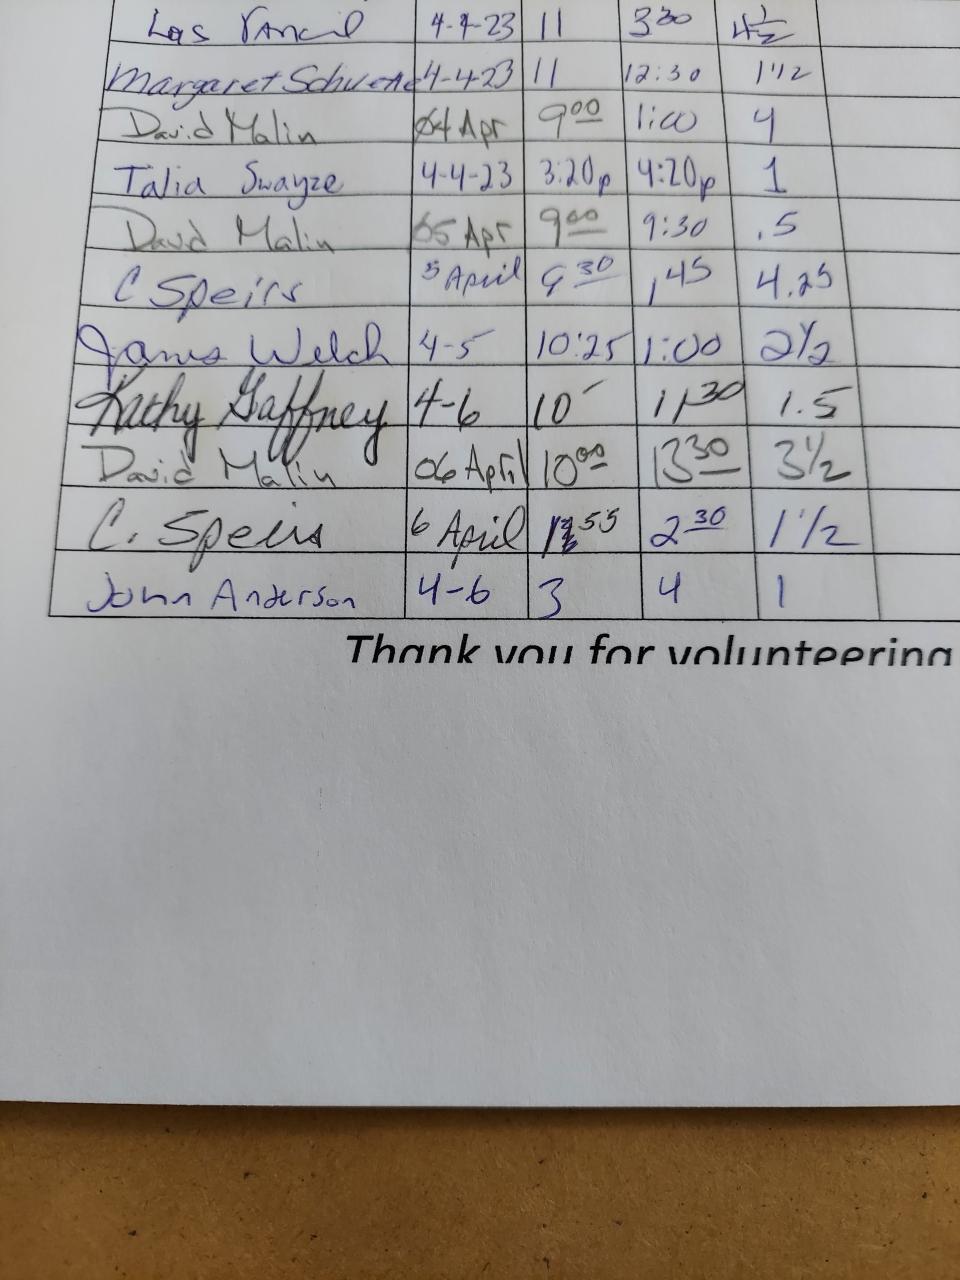 Les Vancil 4-4-23 11 3:30 4 1/2
Margaret Schuette 4-4-23 11 12:30 1 1/2
David Malin 04 Apr 9:00 1:00 4
Talia Swayze 4-4-23 3:20p 4:20p 1
David Malin 05 Apr 9:00 9:30 .5
C Speirs 5 April 9:30 1:45 4.25
James Welch 4-5 10:25 1:00 2 1/2
Kathy Gaffney 4-6 10 11:30 1.5
David Malin 06 April 10:00 13:30 3 1/2
C. Speirs 6 April 2:30 1 1/2
John Anderson 4-6 3 4 1
Thank you for volunteering